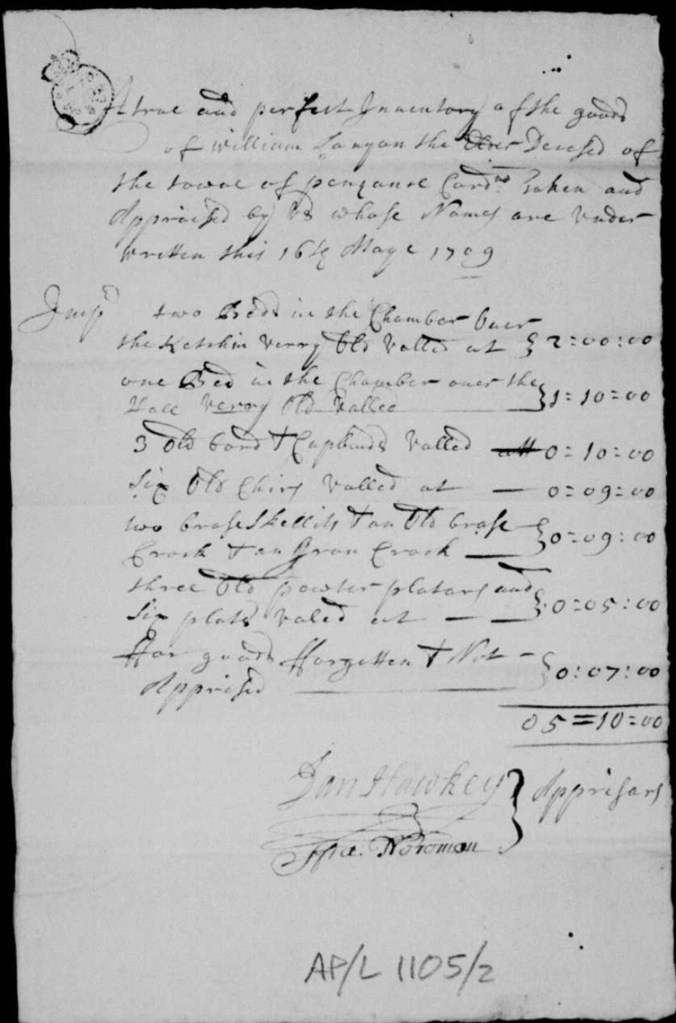 A true and perfect Inventory of the goods
of William Lanyon the Elder Decesed of
the towne of penzance Taken and
Appraised by us whose Names are under
written this 16th Maye 1709
Imp two Beds in the Chamber Over
the Ketchin verry Old Valled at } 2=00=00
one Bed in the Chamber over the
Hall Verry Old Valled } 1=10=00
3 Old bord & Valled att 0=10=00
Six Old Chirs Valled at — 0=09=00
two brase Skellits & an Old brase
Crock & an Iron Crock — } 0=09=00
three Old pewter platars and
Six plats Valed at — — } 0=05=00
ffor goods fforgotten & Not
Apprised — } 0:07:00
05=10=00
Jan Hawkey } Apprisars
Noroman
AP/L 1105/2